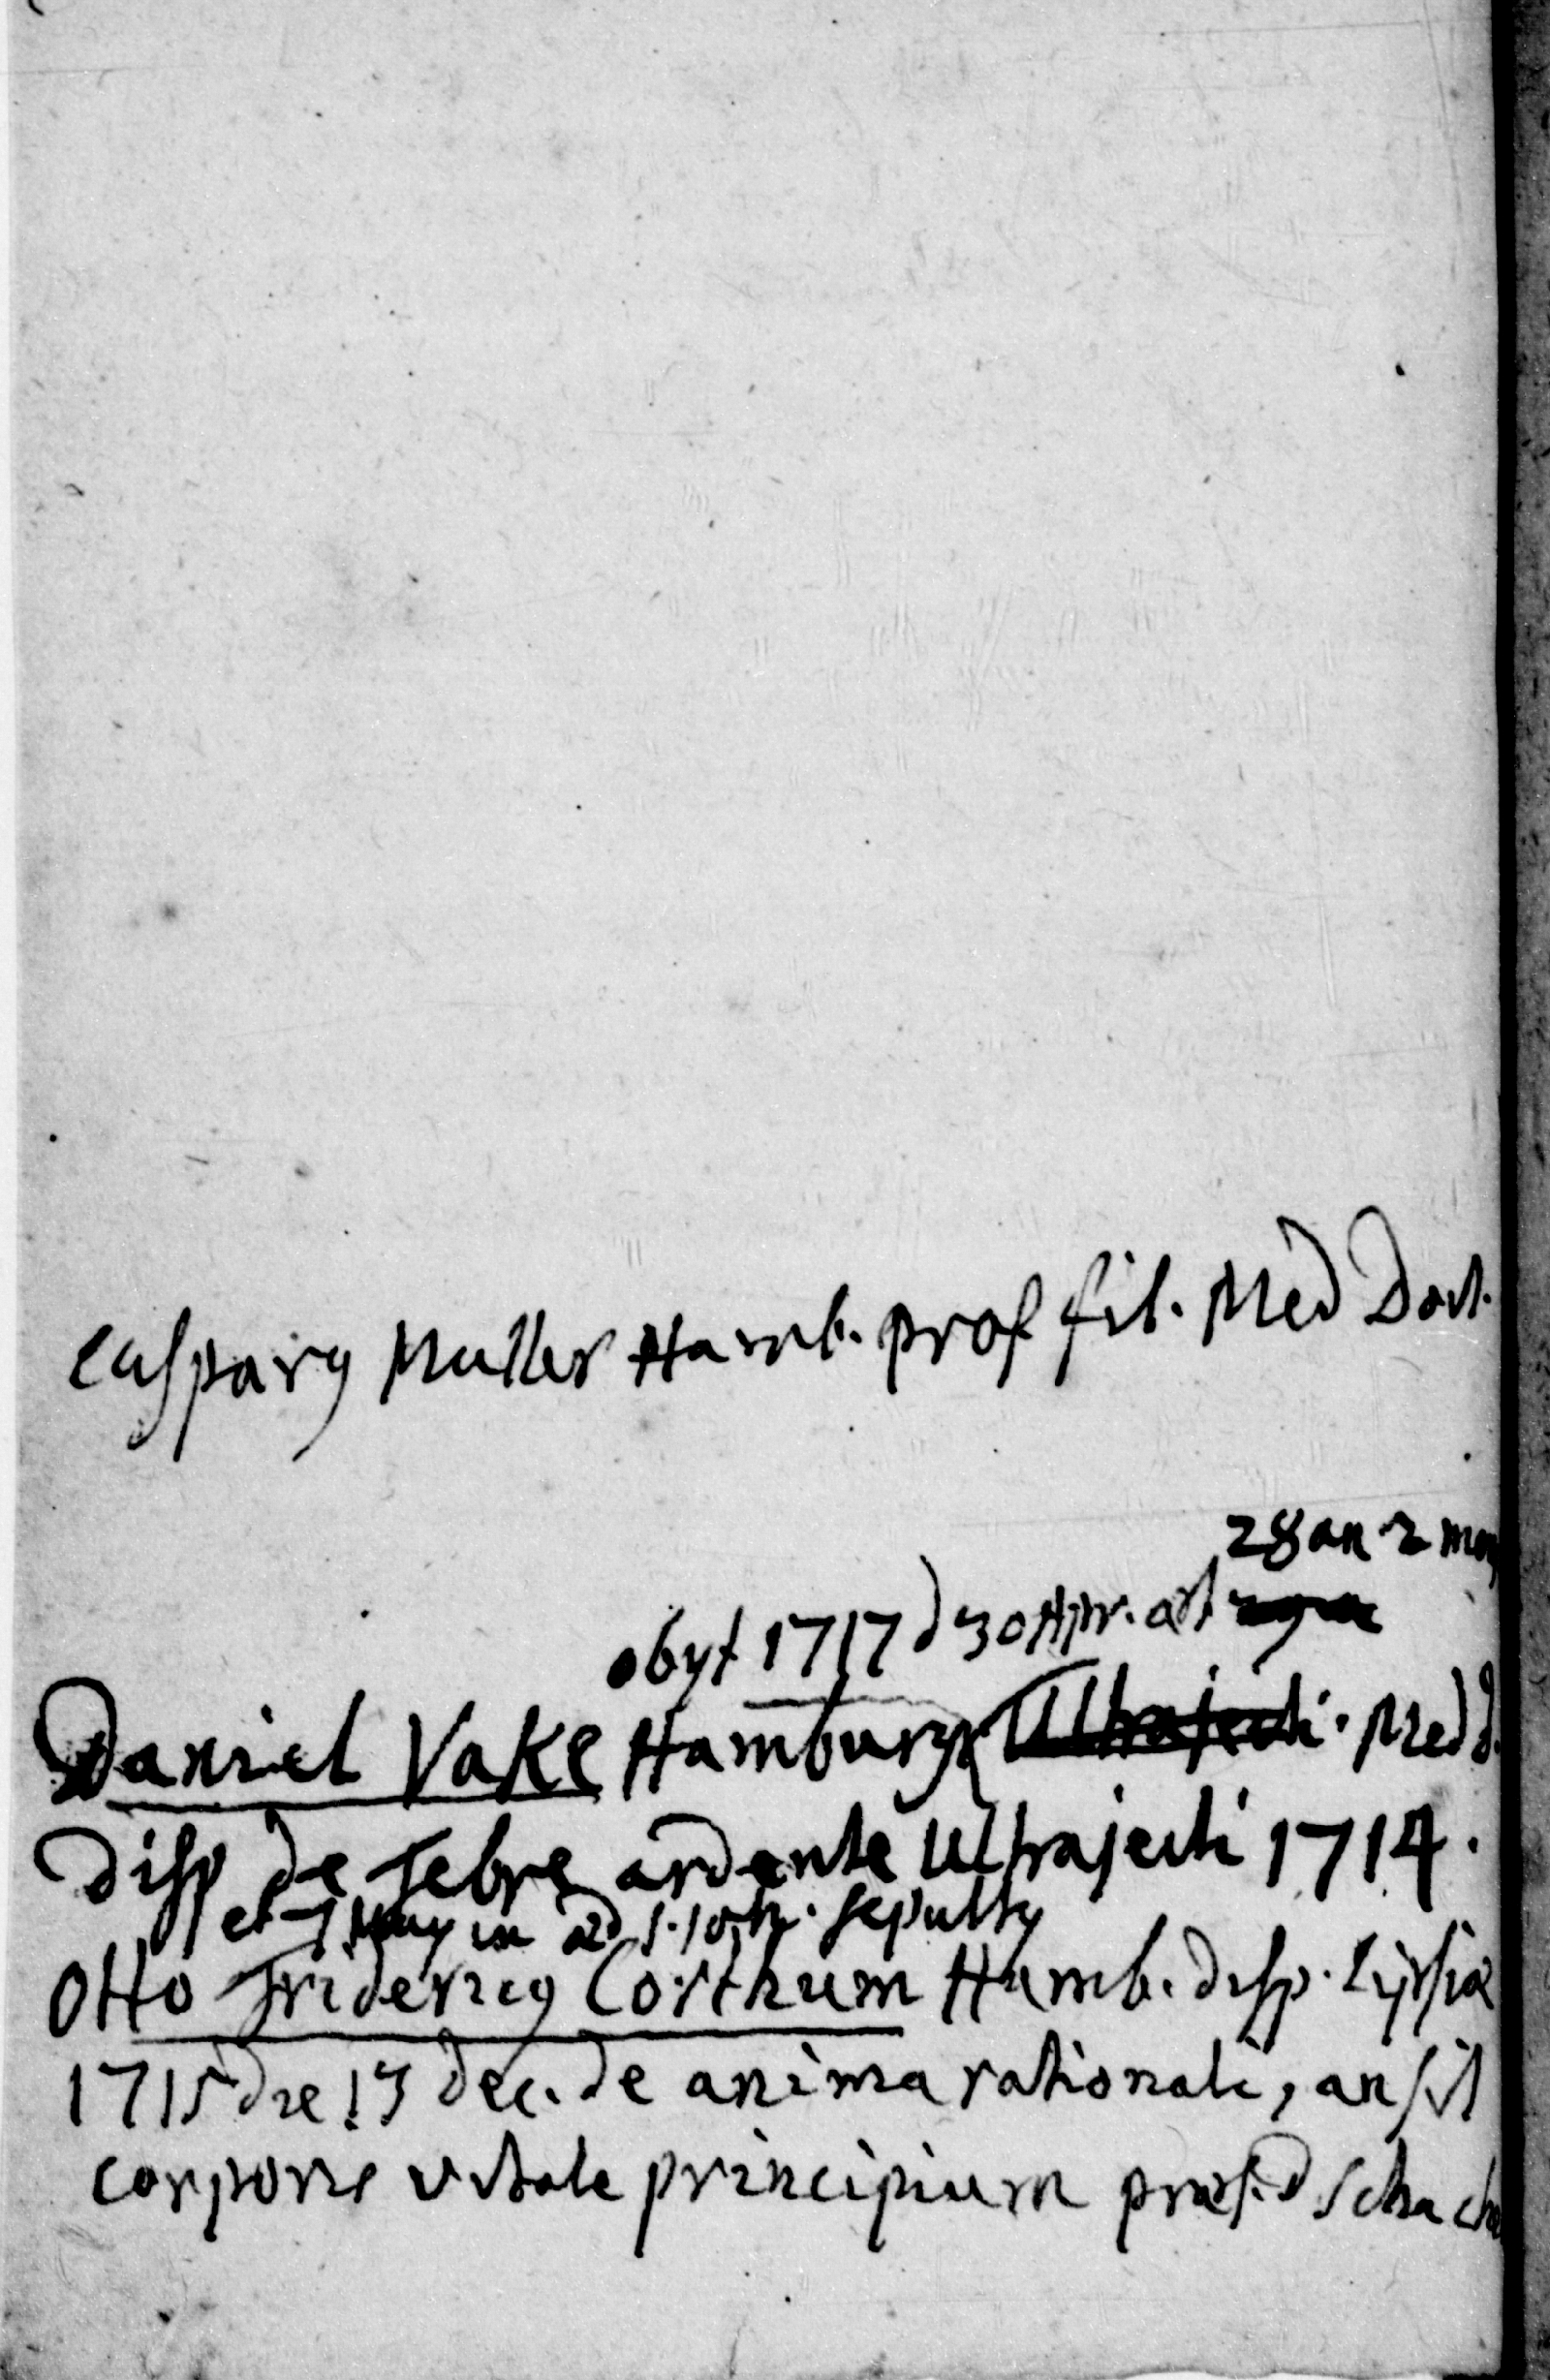 Casparus Muller Hamb. prof fil. Med Doct.
28 an 2 mens
obyt 1717 d 30 Apr. æt
Daniel Vake Hamburg Ultrajecti. Med d.
Disp de Febre ardente Ultrajecti 1714.
et 7 May in æd S. Joh. sepultus
Otto Fridericus Corthum Hamb. disp. Lipsiæ
1715 die 13 Dec. de anima rationali, an sit
corporis vitale principium præs. D Schacher